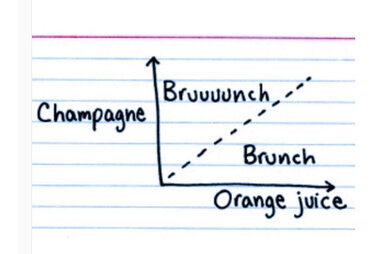 Bruuuunch
Champagne
Brunch
Orange juice